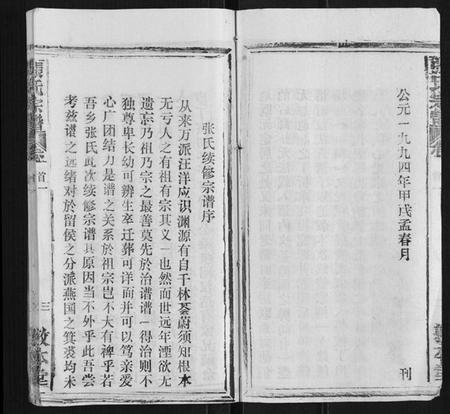 公元一九九四年甲戌孟春月 刊
张氏续修宗谱序
从来万派汪洋应识渊源有自千林荟蔚须知根本
无亏人之有祖有宗其义一也然而世远年湮欲无
遗忘乃祖乃宗之最善莫先於治谱谱一得治则不
独尊卑长幼可辨生卒迁葬可详而并可以笃亲爱
心广团结力是谱之关系於祖宗岂不大有裨乎若
吾乡张氏此次续修宗谱其原因当不外乎此吾尝
考兹谱之远绪对於留侯之分派燕国之箕裘均未
張氏宗譜
卷首一
三
敦本堂